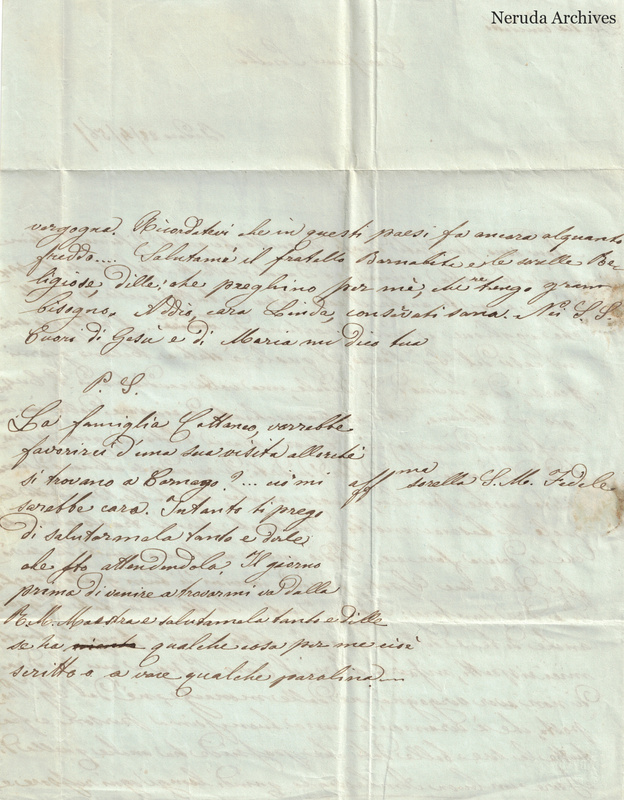 Neruda Archives
vergogna. Ricordatevi che in questi paesi fa ancora alquanto
freddo.... Salutame il fratello Barnabita e le sorelle Re-
ligiose, dille; che preghino per mè, che ne tengo gran
bisogno. Addio, cara Linda, conservati sana. Nei S.S.
Cuori di Gesù e di Maria mi dico tua
P. S.
La famiglia Cattaneo, vorrebbe
favorirci d'una sua visita allorchè
si trovano a Cornago?... ciò mi
aff.ma sorella S. M. Fedele
sarebbe cara. Intanto ti prego
di salutarmela tanto e dirle,
che sto attendendola. Il giorno
prima di venire a trovarmi va dalla
R. M. Maestra e salutamela tanto e dille
se ha niente qualche cosa per me cisè
scritto o a voce qualche parolina.